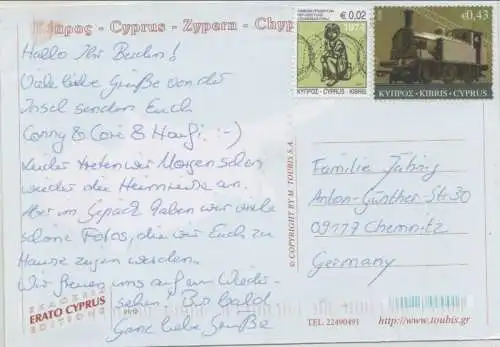 Κύπρος - Cyprus - Zypern - Chyp
€ 0,02
1974
ΚΥΠΡΟΣ - CYPRUS - KIBRIS
€0,43
ΚΥΠΡΟΣ · KIBRIS · CYPRUS
Hallo Ihr Beiden!
Viele liebe Grüße von der
Insel senden Euch
Conny & Core & Hansi :-)
Leider treten wir Morgen schon
wieder die Heimreise an.
Aber im Gepäck haben wir viele
schöne Fotos, die wir Euch zu
Hause zeigen werden.
Wir freuen uns auf ein Wieder-
sehen! Bis bald
Ganz liebe Grüße
Familie Jährig
Anton-Günther Str. 30
09177 Chemnitz
Germany
© COPYRIGHT BY M. TOUBIS S.A.
ΕΚΔΟΣΕΙΣ
ERATO CYPRUS
EDITIONS
TEL. 22490491
http://www.toubis.gr